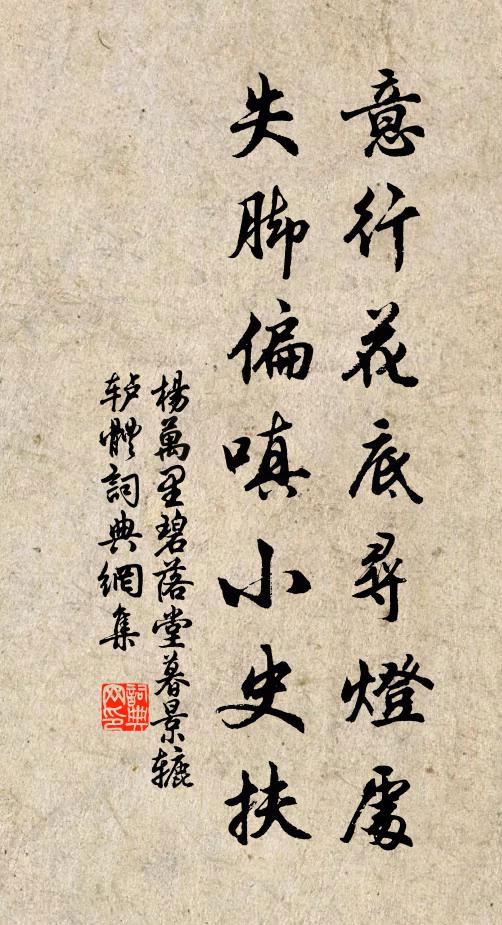 意行花底尋燈處
失脚偏嗔小史扶
楊萬里碧落堂暮景辘
轳體詞典網集
詞典
网印